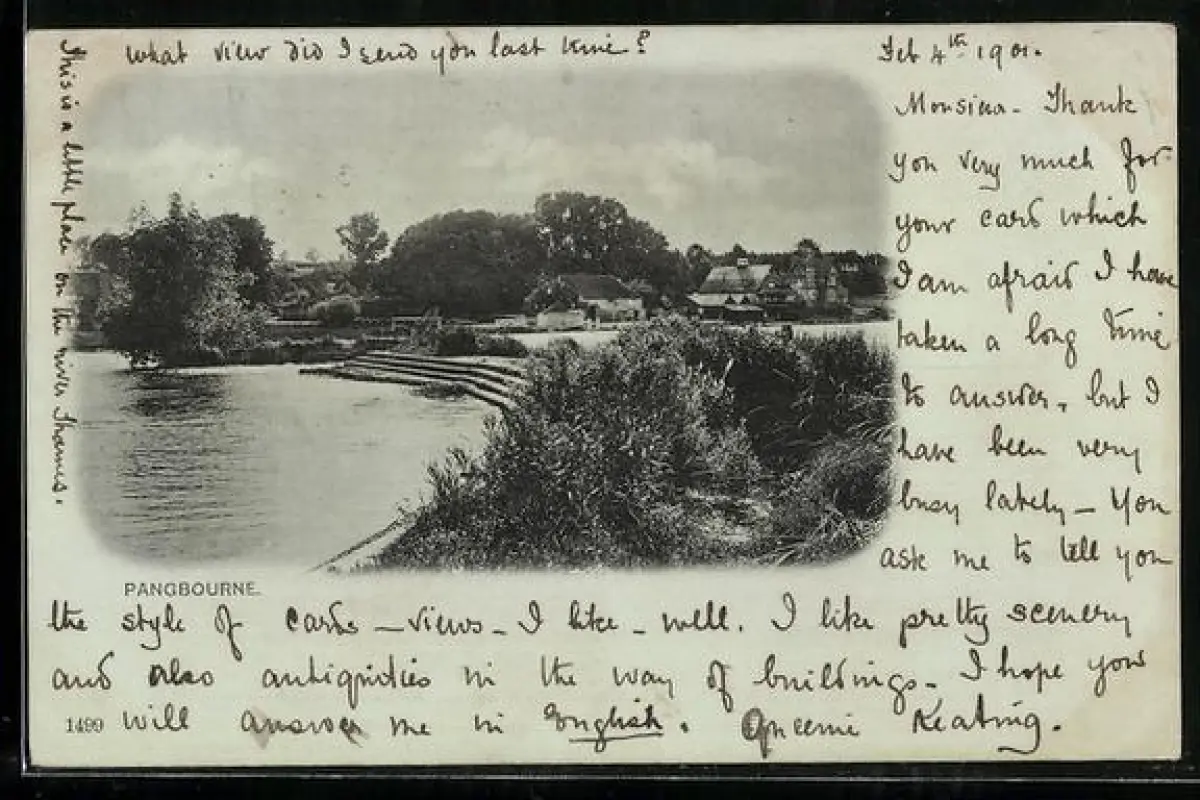 what view did I send you last time?
This is a little place on the river Thames.
Feb 4th 1901.
Monsieur - Thank
you very much for
your card which
I am afraid I have
taken a long time
to answer, but I
have been very
busy lately - You
ask me to tell you
PANGBOURNE.
the style of cards - views - I like - well. I like pretty scenery
and also antiquities in the way of buildings - I hope you
1499 will answer me in English. Queenie Keating.